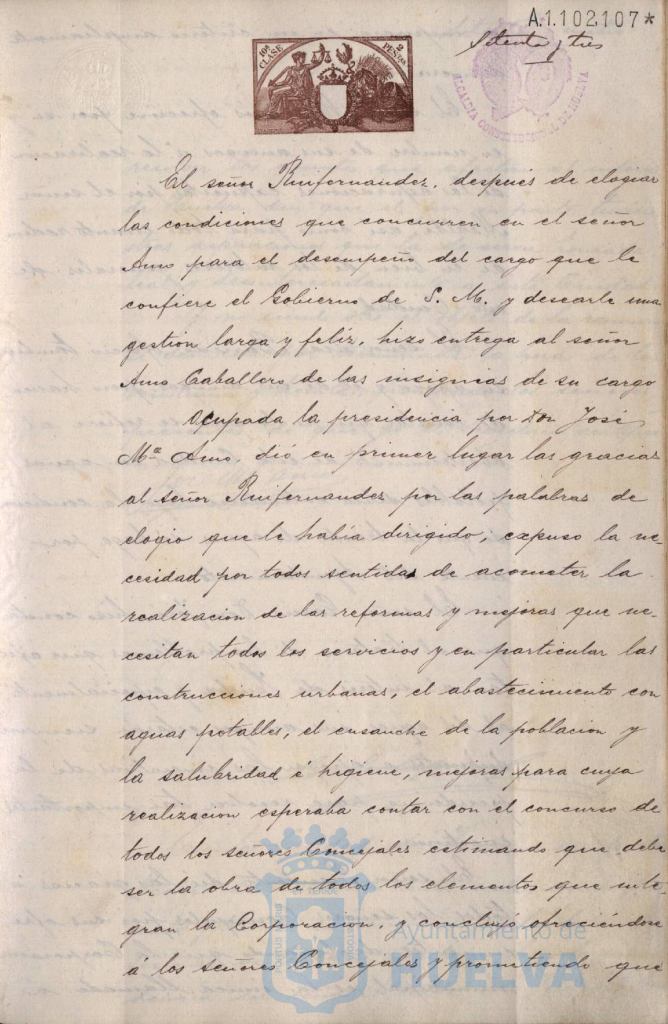 A.1.102.107*
Setenta y tres
10ª CLASE
2 PESETAS
ALCALDIA CONSTITUCIONAL DE HUELVA
El señor Ruifernandez, después de elogiar
las condiciones que concurren en el señor
Amo para el desempeño del cargo que le
confiere el Gobierno de S. M. y desearle una
gestión larga y feliz, hizo entrega al señor
Amo Caballero de las insignias de su cargo
Ocupada la presidencia por Don José
Mª Amo, dió en primer lugar las gracias
al señor Ruifernandez por las palabras de
elogio que le había dirigido; expuso la ne-
cesidad por todos sentidos de acometer la
realizacion de las reformas y mejoras que ne-
cesitan todos los servicios y en particular las
construcciones urbanas, el abastecimiento con
aguas potables, el ensanche de la poblacion y
la salubridad é higiene, mejoras para cuya
realizacion esperaba contar con el concurso de
todos los señores Concejales estimando que debe
ser la obra de todos los elementos que inte-
gran la Corporacion, y concluyó ofreciéndose
á los señores Concejales y prometiendo que
Ayuntamiento de
HUELVA